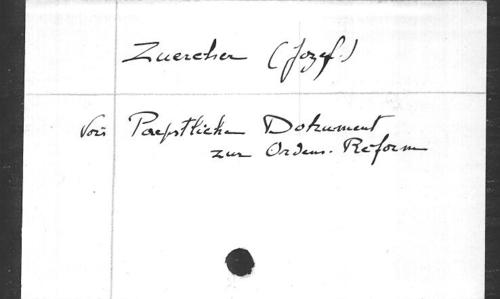 Zuercher (Jozef.)
Voir Paepstliche Dokument
zur Ordens-Reform